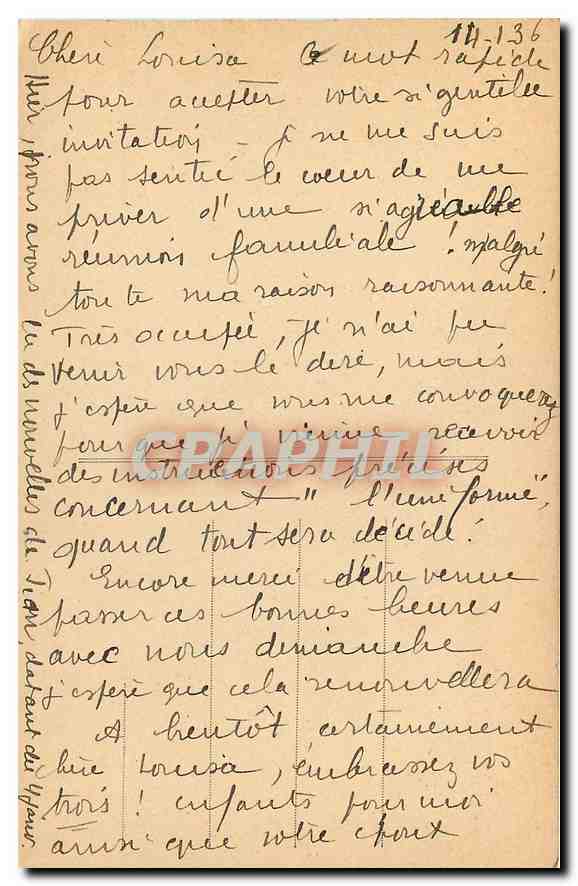 14-1-36
Chère Louisa Ce mot rapide
pour accepter votre si gentille
invitation - je ne me suis
pas sentie le cœur de me
priver d'une si agréable
réunion familiale ! malgré
toute ma raison raisonnante !
Très occupée, je n'ai pu
venir vous le dire, mais
j'espère que vous me convoquerez
pour que je vienne recevoir
des instructions précises
concernant " l'uniforme",
quand tout sera décidé !
Encore merci d'être venue
passer ces bonnes heures
avec nous dimanche
j'espère que cela renouvellera
A bientôt certainement
chère Louisa, embrassez vos
trois ! enfants pour moi
ainsi que votre
Hier, nous avons eu de nouvelles de Jean, datant du 4 janv.
CRAPHIL